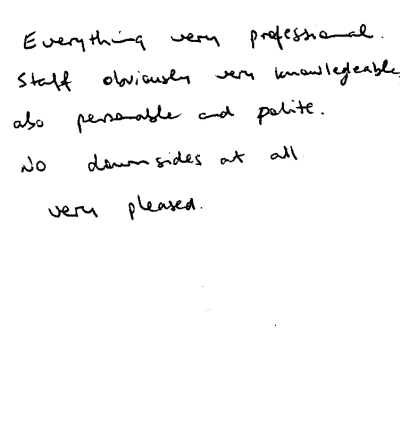 Everything very professional.
Staff obviously very knowledgeable,
also personable and polite.
No downsides at all
very pleased.